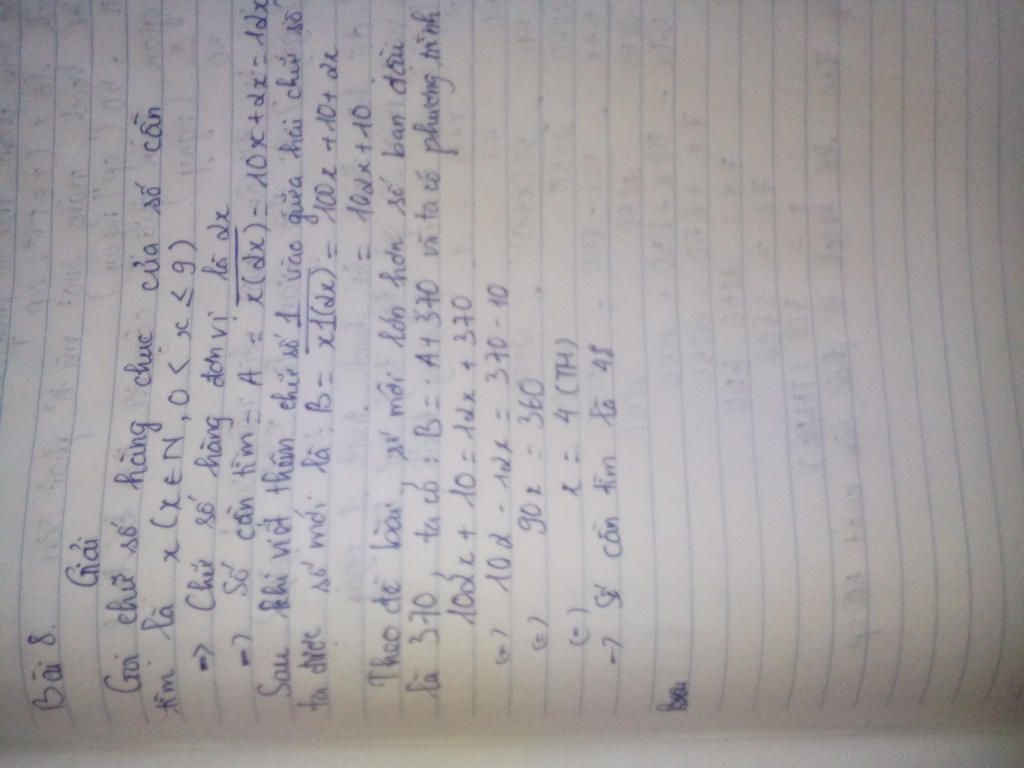 Bài 8.
Giải
Gọi chữ số hàng chục của số cần
tìm là x (x ∈ N, 0 < x ≤ 9)
=> Chữ số hàng đơn vị là 2x
=> Số cần tìm = A = x(2x) = 10x + 2x = 12x
Sau khi viết thêm chữ số 1 vào giữa hai chữ số
ta được số mới là: B = x1(2x) = 100x + 10 + 2x
= 102x + 10
Theo đề bài, số mới lớn hơn số ban đầu
là 370 ta có: B = A + 370 vì ta có phương trình
102x + 10 = 12x + 370
(=) 102 - 12x = 370 - 10
(=) 90x = 360
(=) x = 4 (TH)
=> Số cần tìm là 48
Bài